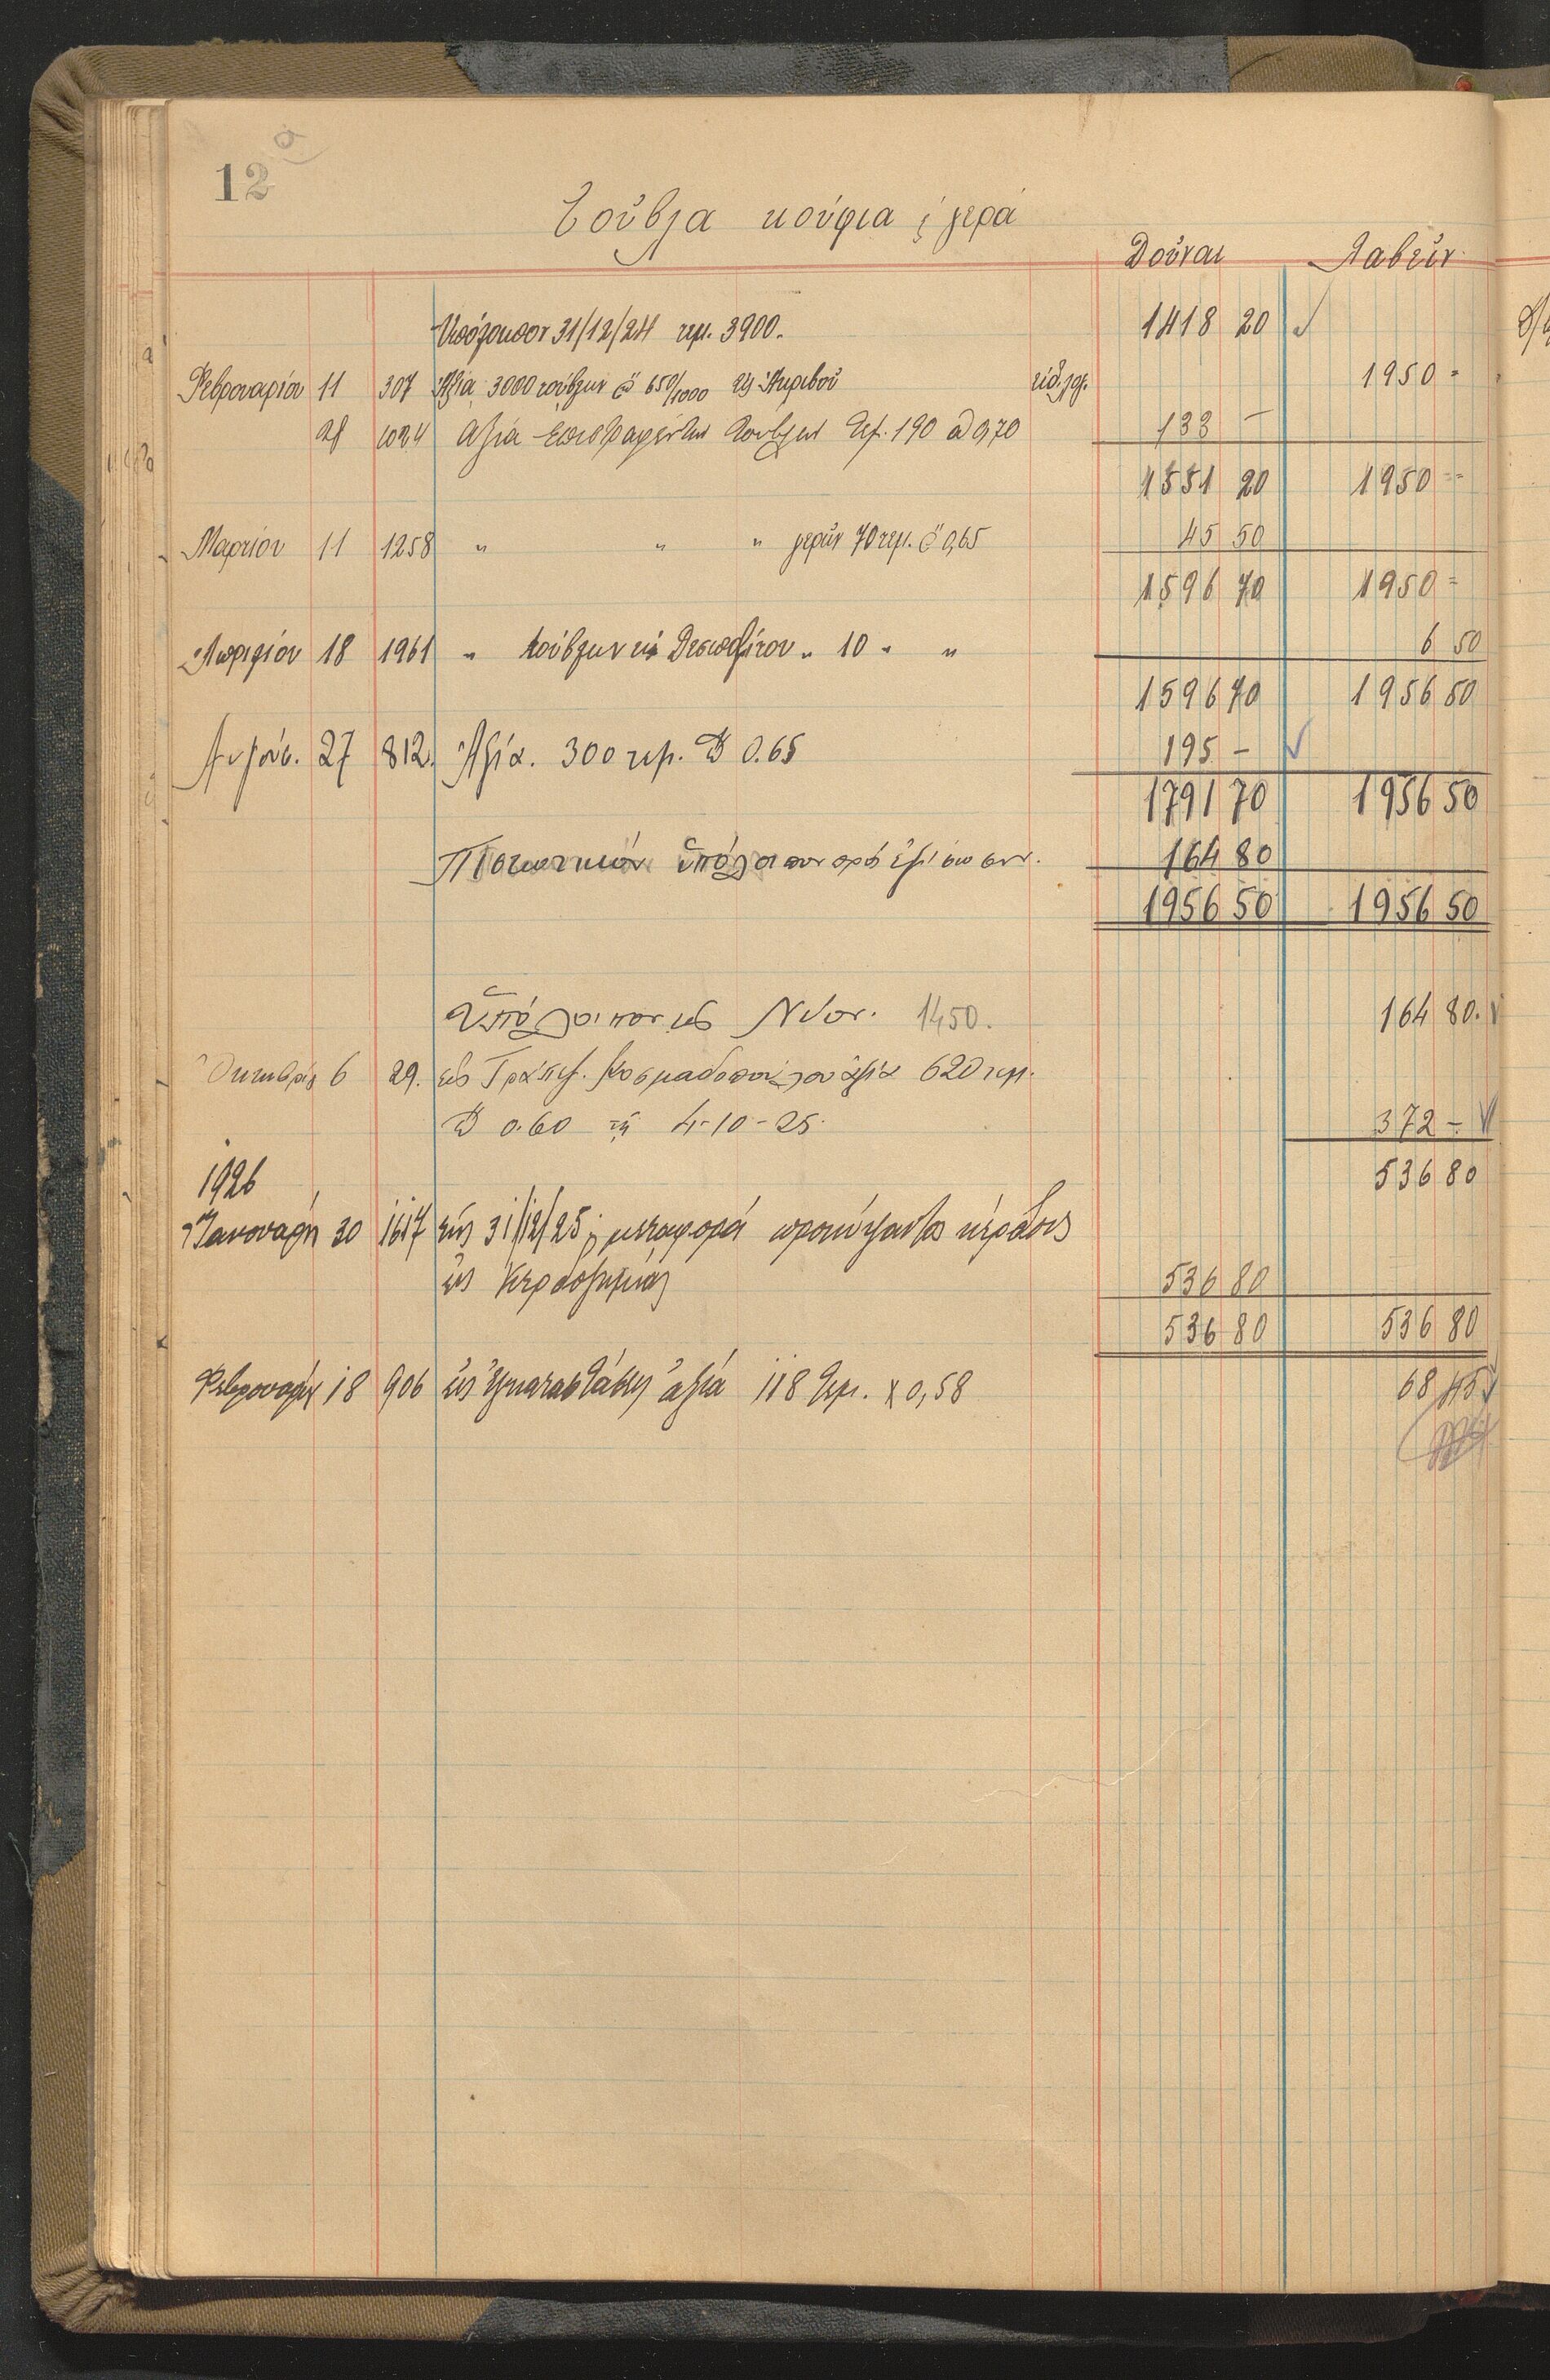 12 α
Τοῦβλα κούφια & γερά
Δοῦναι Λαβεῖν
Ὑπόλοιπον 31/12/24 τεμ. 3900. 1418 20
Φεβρουαρίου 11 307 Ἀξία 3000 τούβλων @ 650/1000 εἰς Ἀκριβοῦ 1950 =
28 1024 Ἀξία ἐπιστραφέντων τούβλων τεμ. 190 @ 0,70 133 —
1551 20 1950 =
Μαρτίου 11 1258 " " " γερῶν 70 τεμ. @ 0,65 45 50
1596 70 1950 =
Ἀπριλίου 18 1961 " τούβλων εἰς " 10 " " 6 50
1596 70 1956 50
Αὐγούσ. 27 812. Ἀξία. 300 τεμ. @ 0.65 195 —
1791 70 1956 50
Πιστωτικόν ὑπόλοιπον πρός ἐξίσωσιν. 164 80
1956 50 1956 50
Ὑπόλοιπον εἰς Νέον. 1450. 164 80.
Ὀκτωβρίο 6 29. εἰς Τράπεζ. Κοσμαδοπούλου ἀξία 620 τεμ.
@ 0.60 τῇ 4-10-25. 372 —
536 80
1926
Ἰανουαρίου 30 1617 τῇ 31/12/25 μεταφορά προκύψαντος κέρδους
εἰς Κερδοζημίας 536 80
536 80 536 80
Φεβρουαρίου 18 906 εἰς Ἐγκαταστάσεις ἀξία 118 τεμ. x 0,58 68 45